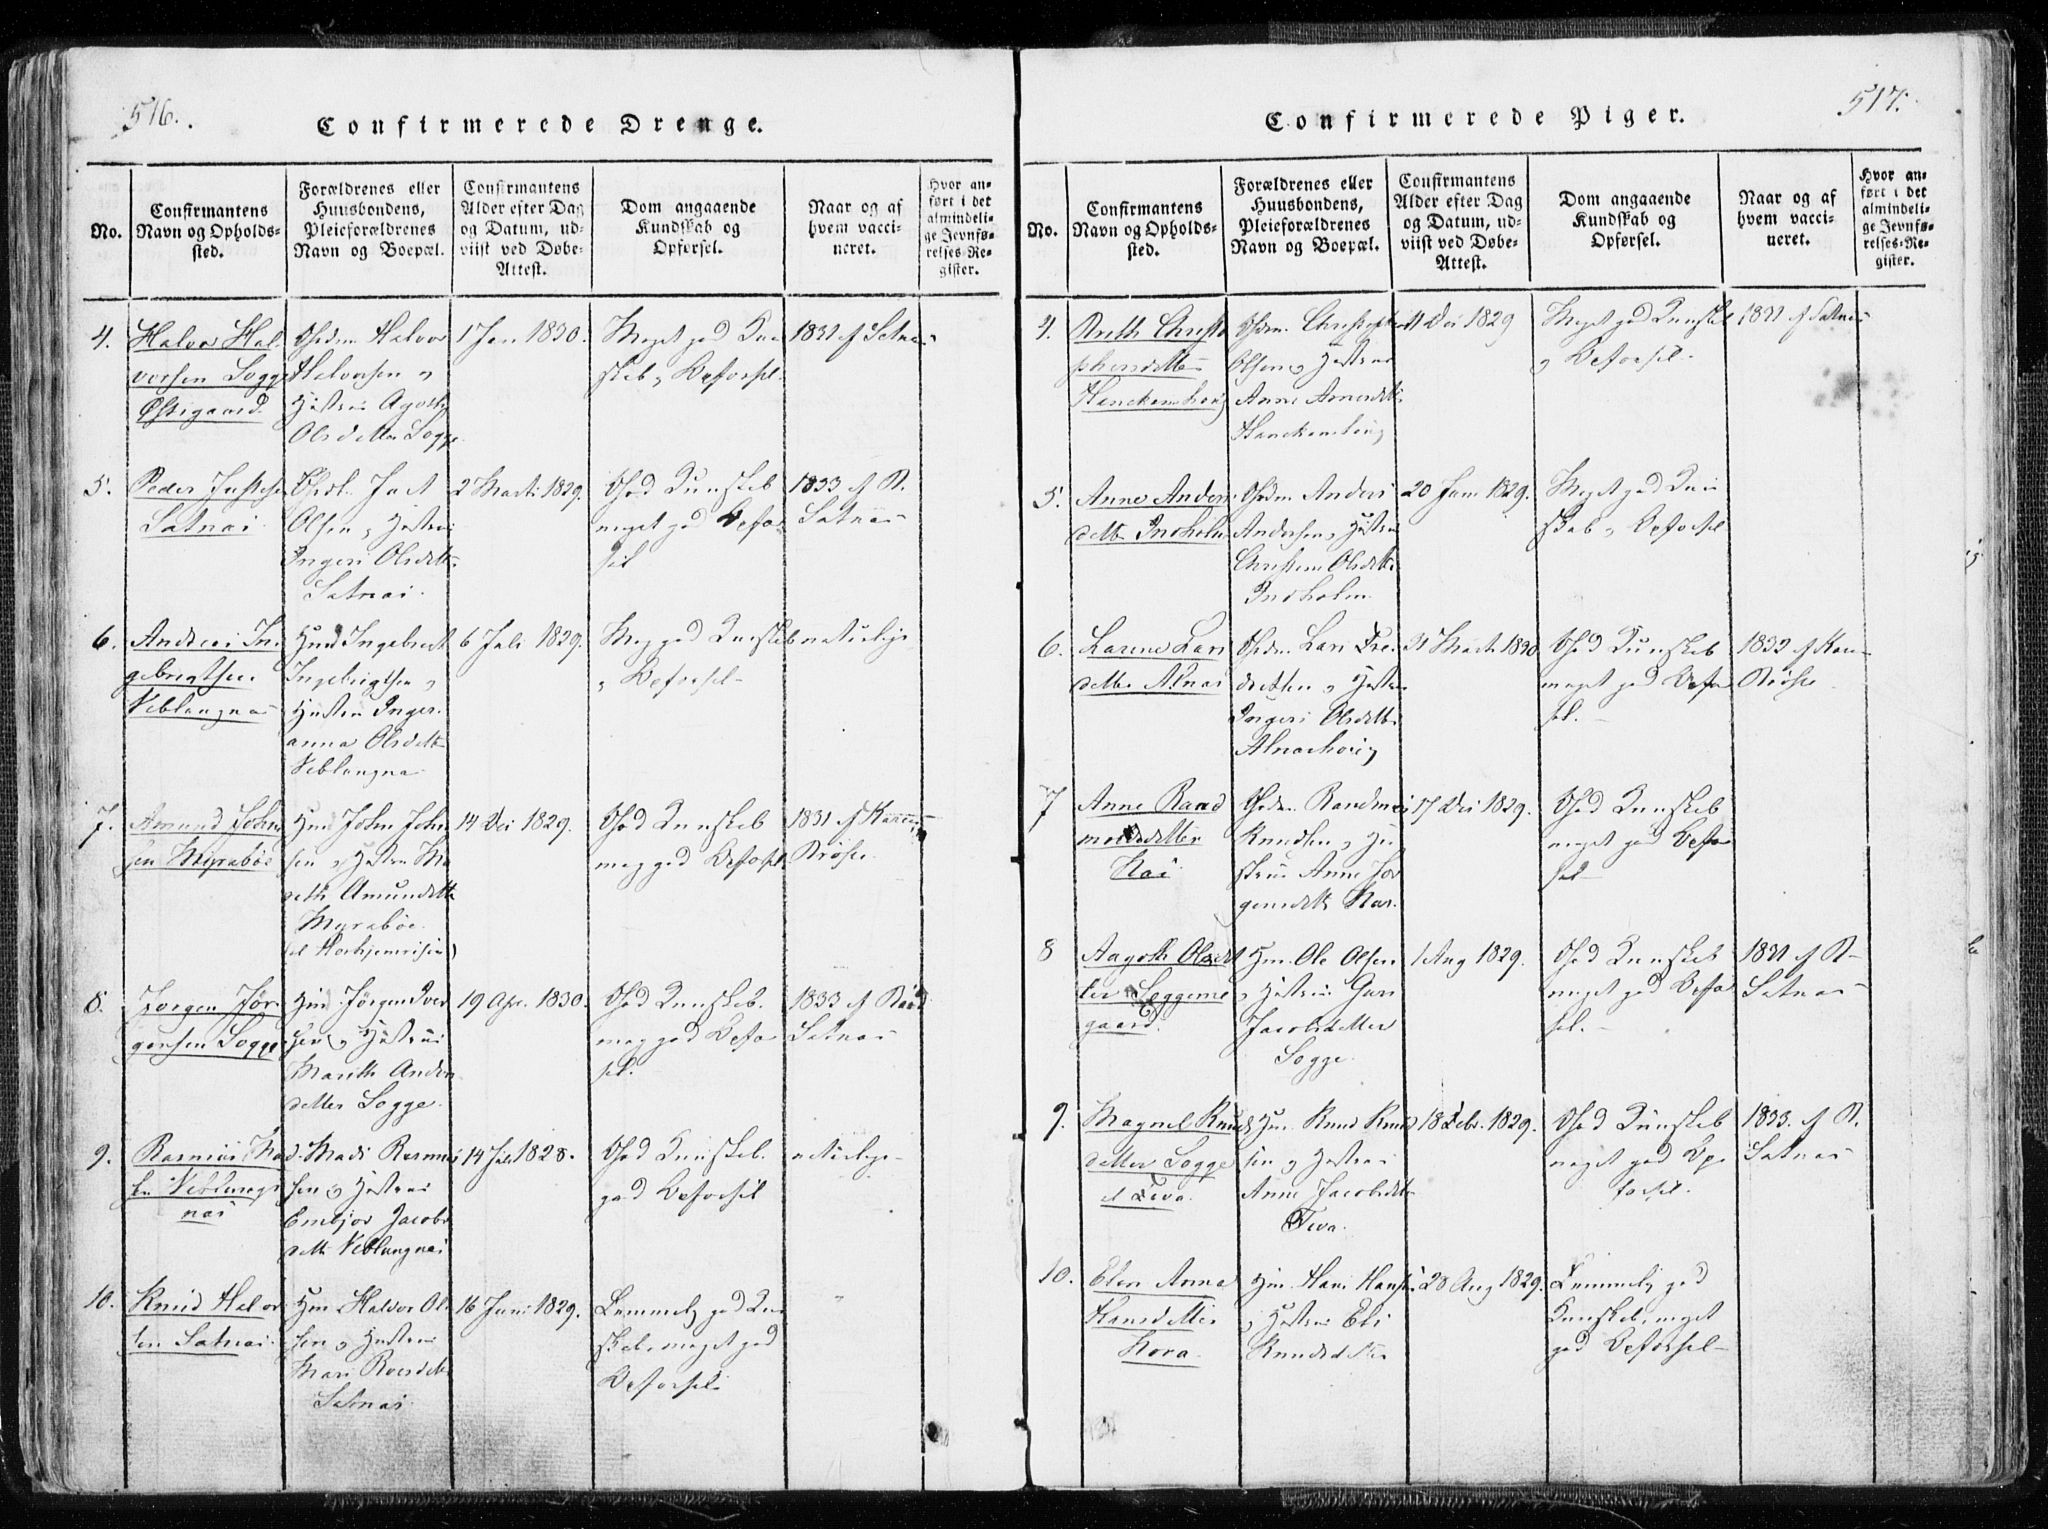 516.
Confirmerede Drenge.
No.
Confirmantens
Navn og Opholds-
sted.
Forældrenes eller
Huusbondens,
Pleieforældrenes
Navn og Boepæl.
Confirmantens
Alder efter Dag
og Datum, ud-
viist ved Døbe-
Attest.
Dom angaaende
Kundskab og
Opførsel.
Naar og af
hvem vacci-
neret.
Hvor an-
ført i det
almindeli-
ge Jevnfø-
relses-Re-
gister.
4.
Halvor Hal
vorsen Sogge
Østigaard
Halvor
Halvorsen og
Hustrue Agothe
Olsdatter Sogge
1 Jan. 1830.
Meget god Kun
skab og Opførsel.
1831 af Setnes
5.
Peder Justesen
Sætnæs
Just
Olsen og Hustrue
Ingeri Olsdatt
Sætnæs
2 Marti 1829.
God Kunskab
meget god Opfør
sel
1833 af R.
Sætnæs
6.
Andreas In
gebrigtsen
Veblungnæs
Hmd Ingebrict
Ingebrigtsen og
Hustru Inger
anna Olsdatt
Veblungnæ
6 Juli 1829.
Meg god Kunskab
og Opførsel
naturlige
7.
Amund John
sen Myrabøe
Hmd John John
sen og Hustru Ma
reth Amundsdatt
Myrabøe
14 Dec 1829.
God Kunskab
meg god Opførsel
1831 af
Brøste
8.
Jørgen Jør
gensen Sogge
Hmd Jørgen Iver
sen og Hustrue
Marith Anders
datter Sogge
19 Apr. 1830.
God Kunskab.
meg god Opfør
sel.
1833 af
Sætnæs
9.
Rasmus Mad
sen Veblungs
næs
Mads Rasmus
sen og Hustrue
Embjør Jacobs
datt Veblungnæs
14 Juli 1828.
God Kunskab.
god Opførsel
naturlige
10.
Knud Halvor
sen Sætnæs
Hm Halvor Ol
sen og Hustrue
Mari Roersdatt
Sætnæs
16 Juni 1829.
Temmelig god Kun
skab, meget god
Opførsel
"
517.
Confirmerede Piger.
No.
Confirmantens
Navn og Opholds-
sted.
Forældrenes eller
Huusbondens,
Pleieforældrenes
Navn og Boepæl.
Confirmantens
Alder efter Dag
og Datum, ud-
viist ved Døbe-
Attest.
Dom angaaende
Kundskab og
Opførsel.
Naar og af
hvem vacci-
neret.
Hvor an-
ført i det
almindeli-
ge Jevnfø-
relses-Re-
gister.
4.
Breth Christo
phersdatter
Hanekamhoug
Christopher
Olsen og Hustrue
Anne Arnesdatt
Hanekamhoug
11 Dec 1829
Meget god Kunskab
og Opførsel.
1831 af Sætnæs
5.
Anne Anders
datter Indholm
Anders
Andersen og Hustrue
Olsdatt
Indholm
20 Juni 1829.
Meget god Kun
skab og Opførsel
6.
Larene Lars
datter Alnæs
Lars
og Hustrue
Ingeri Olsdatt
Alnæshoug
31 Marti 1830
God Kunskab
meget god Opfør
sel.
1833 af
Brøste
7
Anne Rand
morsdatter
Næs
Knudsen og Hu
strue Anne Jør
gensdatt Næs.
17 Dec 1829.
God Kunskab
meget god Opfør
sel
8
Aagoth Olsdat
ter Soggeme
gaard
Hm. Ole Olsen
og Hustrue Guri
Jacobsdatter
Sogge
1 Aug 1829.
God Kunskab
meget god Opfør
sel.
1831 af R
Sætnæs
9.
Magnel Knuds
datter Sogge
el Teva
Hm. Knud Knud
sen og Hustrue
Anne Jacobsdatt
Teva.
18 Febr. 1829.
God Kunskab
meget god Op
førsel.
1833. af R.
Sætnæs
10.
Elen Anna
Hansdatter
Nora
Hm. Hans Hansen
og Hustrue Eli
Knudsdatter
28 Aug 1829.
Temmelig god
Kunskab, meget
god Opførsel